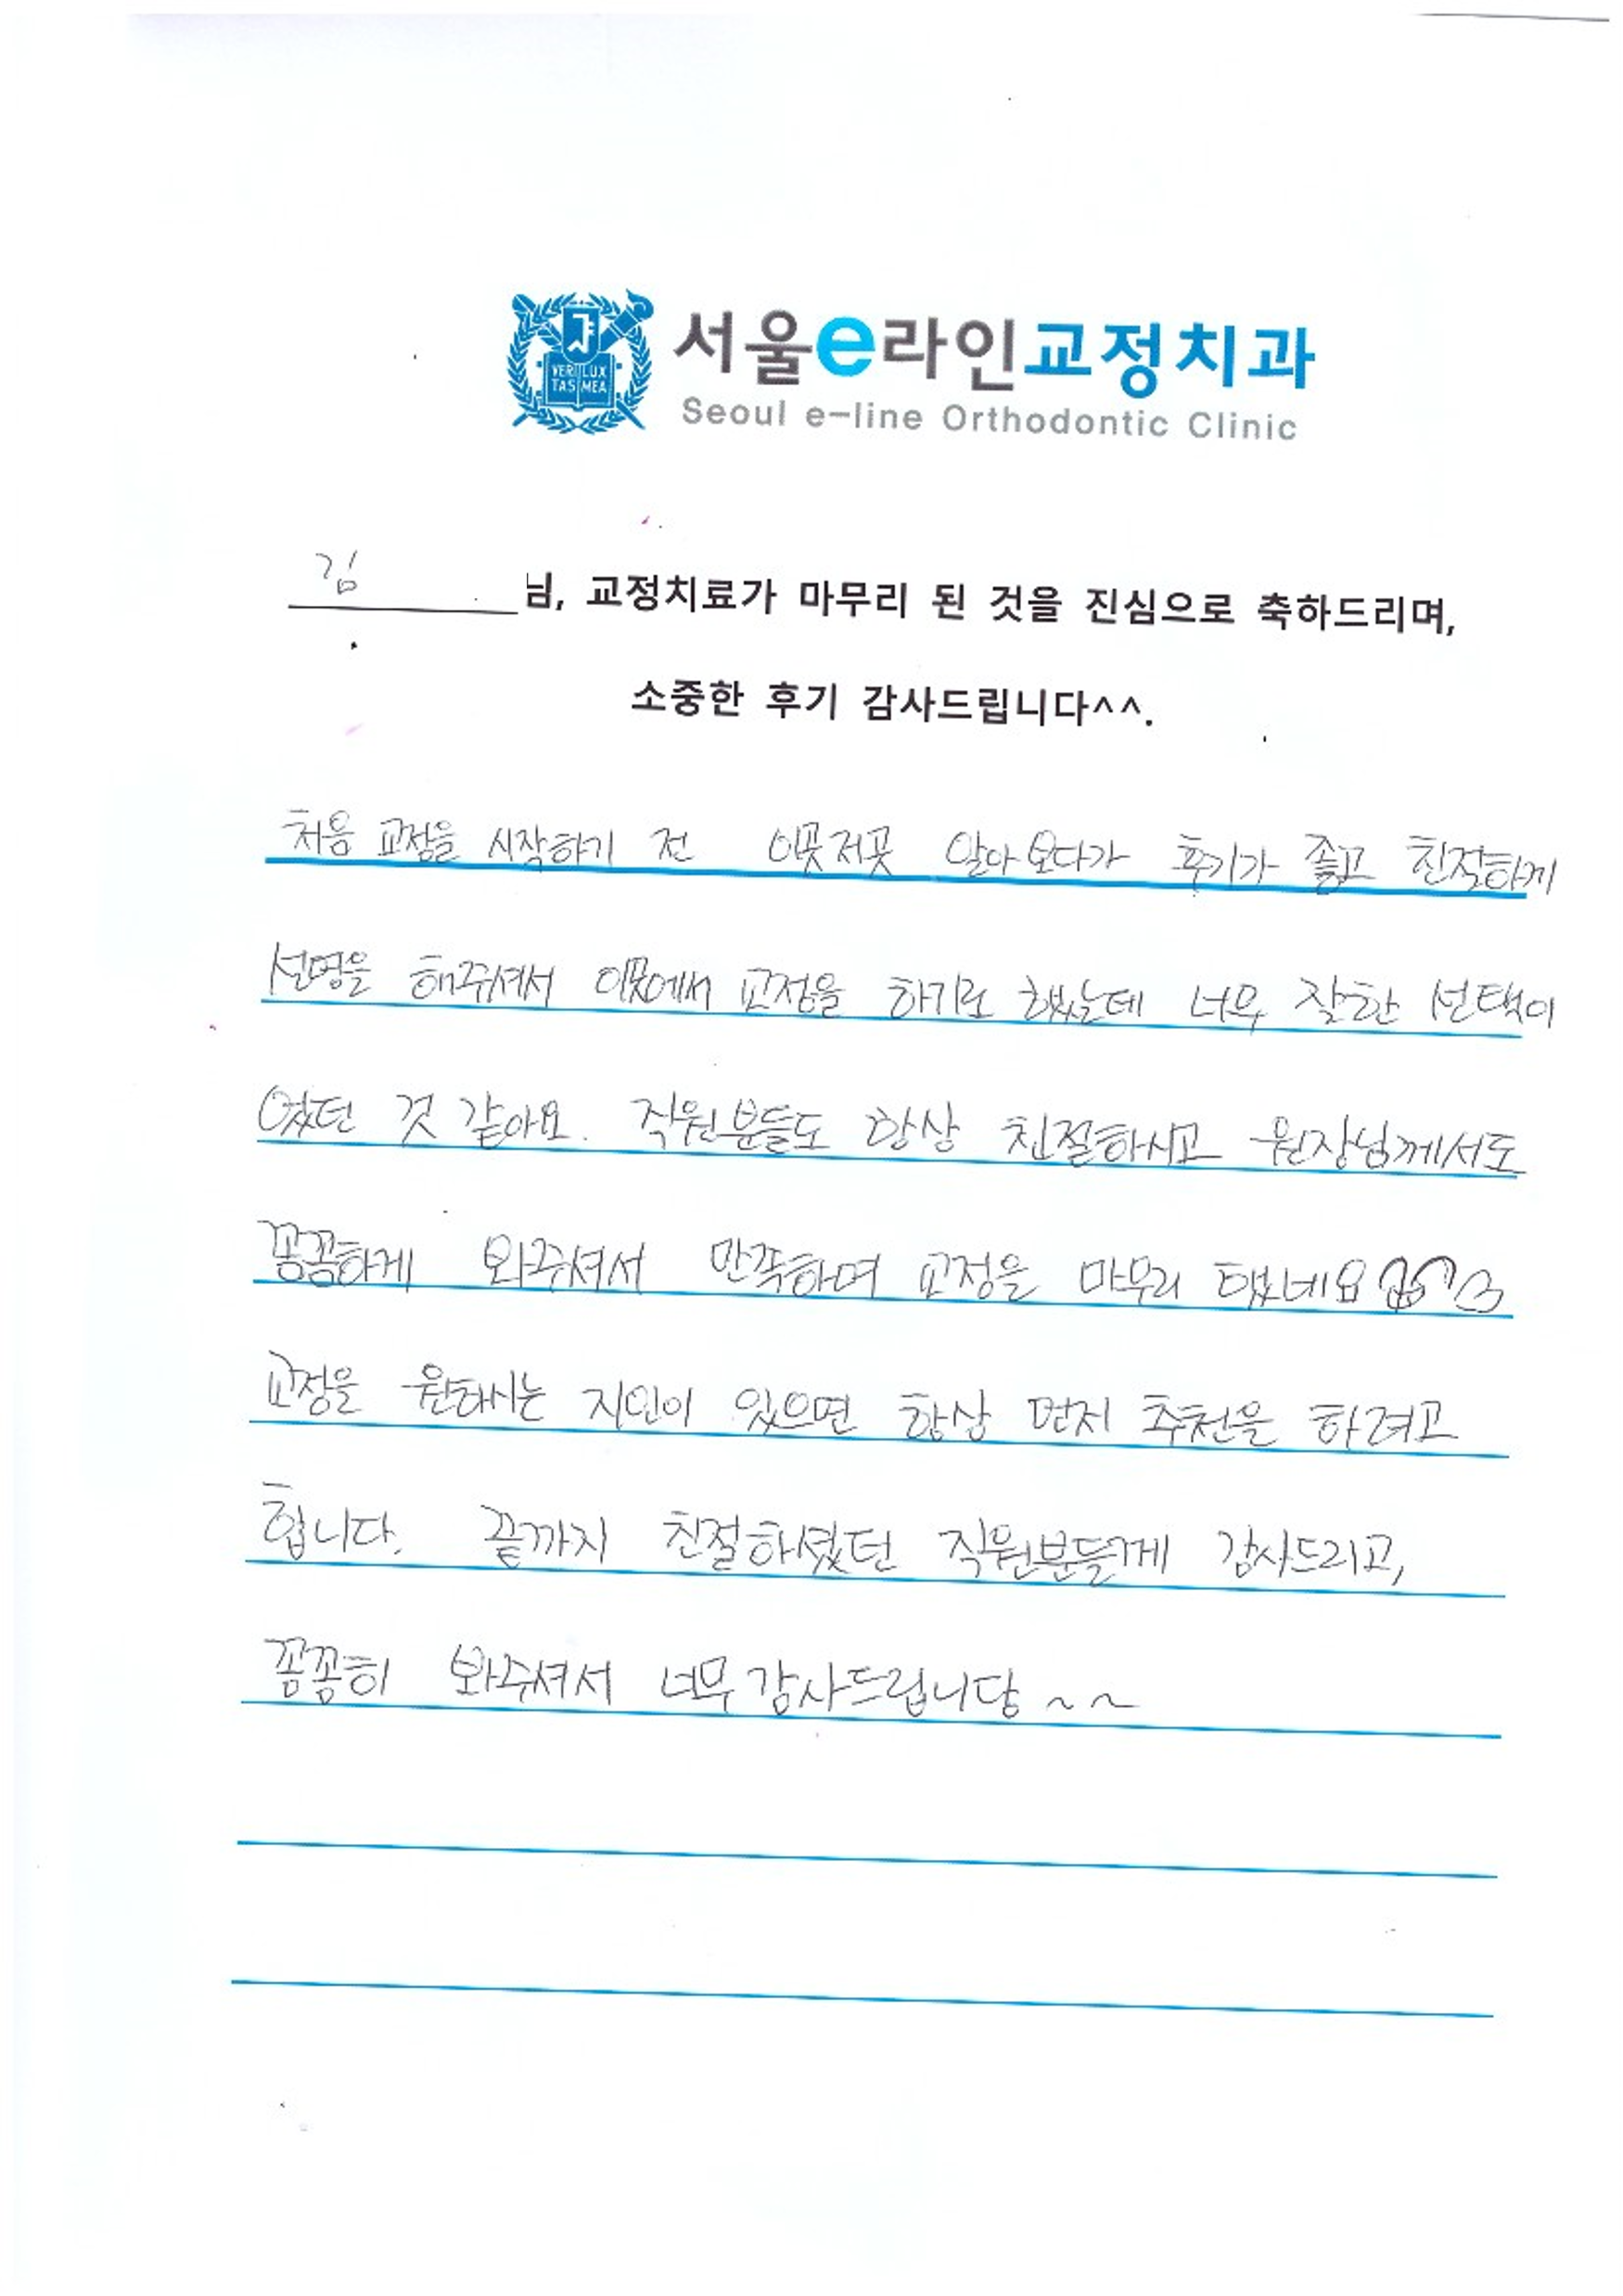 VERI LUX
TAS MEA
서울e라인교정치과
Seoul e-line Orthodontic Clinic
김 님, 교정치료가 마무리 된 것을 진심으로 축하드리며,
소중한 후기 감사드립니다^^.
처음 교정을 시작하기 전 이곳저곳 알아보다가 후기가 좋고 친절하게
설명을 해주셔서 이곳에서 교정을 하기로 했는데 너무 잘한 선택이
었던 것 같아요. 직원분들도 항상 친절하시고 원장님께서도
꼼꼼하게 봐주셔서 만족하며 교정을 마무리 했네요
교정을 원하시는 지인이 있으면 항상 먼저 추천을 하려고
합니다. 끝까지 친절하셨던 직원분들께 감사드리고,
꼼꼼히 봐주셔서 너무 감사드립니당~~